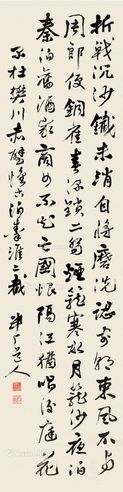 折戟沉沙鐵未消自將磨洗認前朝東風不與
周郎便銅雀春深鎖二喬煙籠寒水月籠沙夜泊
秦淮近酒家商女不知亡國恨隔江猶唱後庭花
右杜樊川赤壁懷古泊秦淮二截
道人